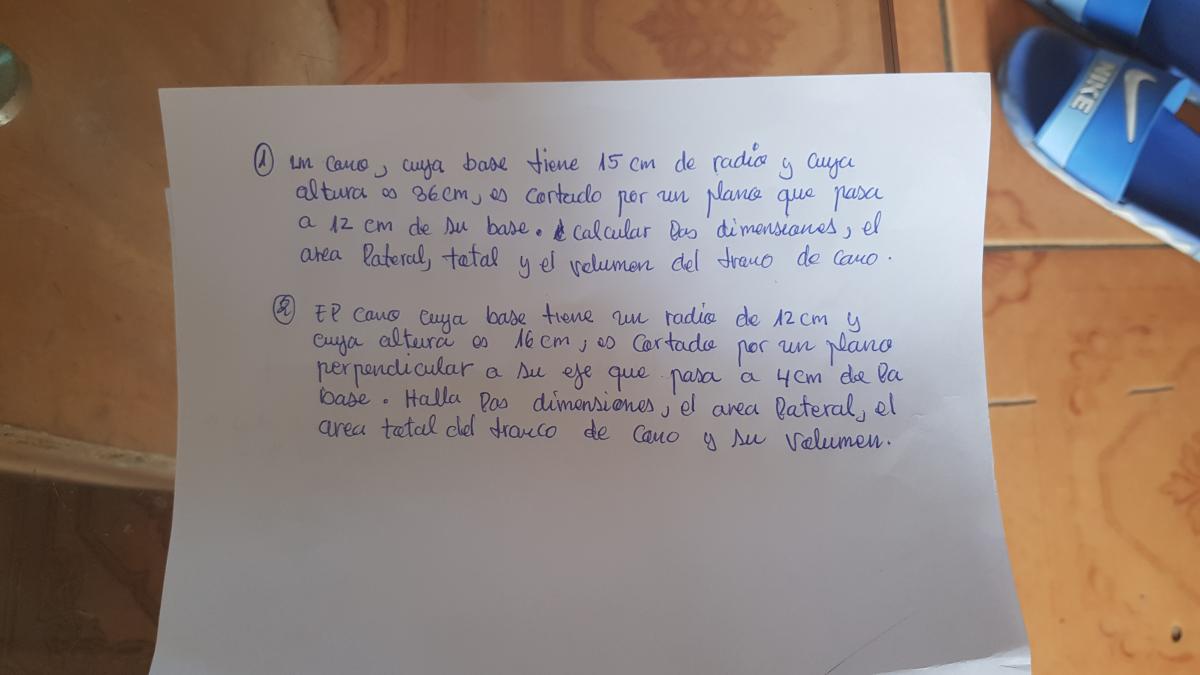 ① un cono, cuya base tiene 15 cm de radio y cuya
altura es 36cm, es cortado por un plano que pasa
a 12 cm de su base. Calcular las dimensiones, el
area lateral, total y el volumen del tronco de cono.
② El cono cuya base tiene un radio de 12cm y
cuya altura es 16cm, es cortado por un plano
perpendicular a su eje que pasa a 4cm de la
base. Halla las dimensiones, el area lateral, el
area total del tronco de cono y su volumen.
NIKE